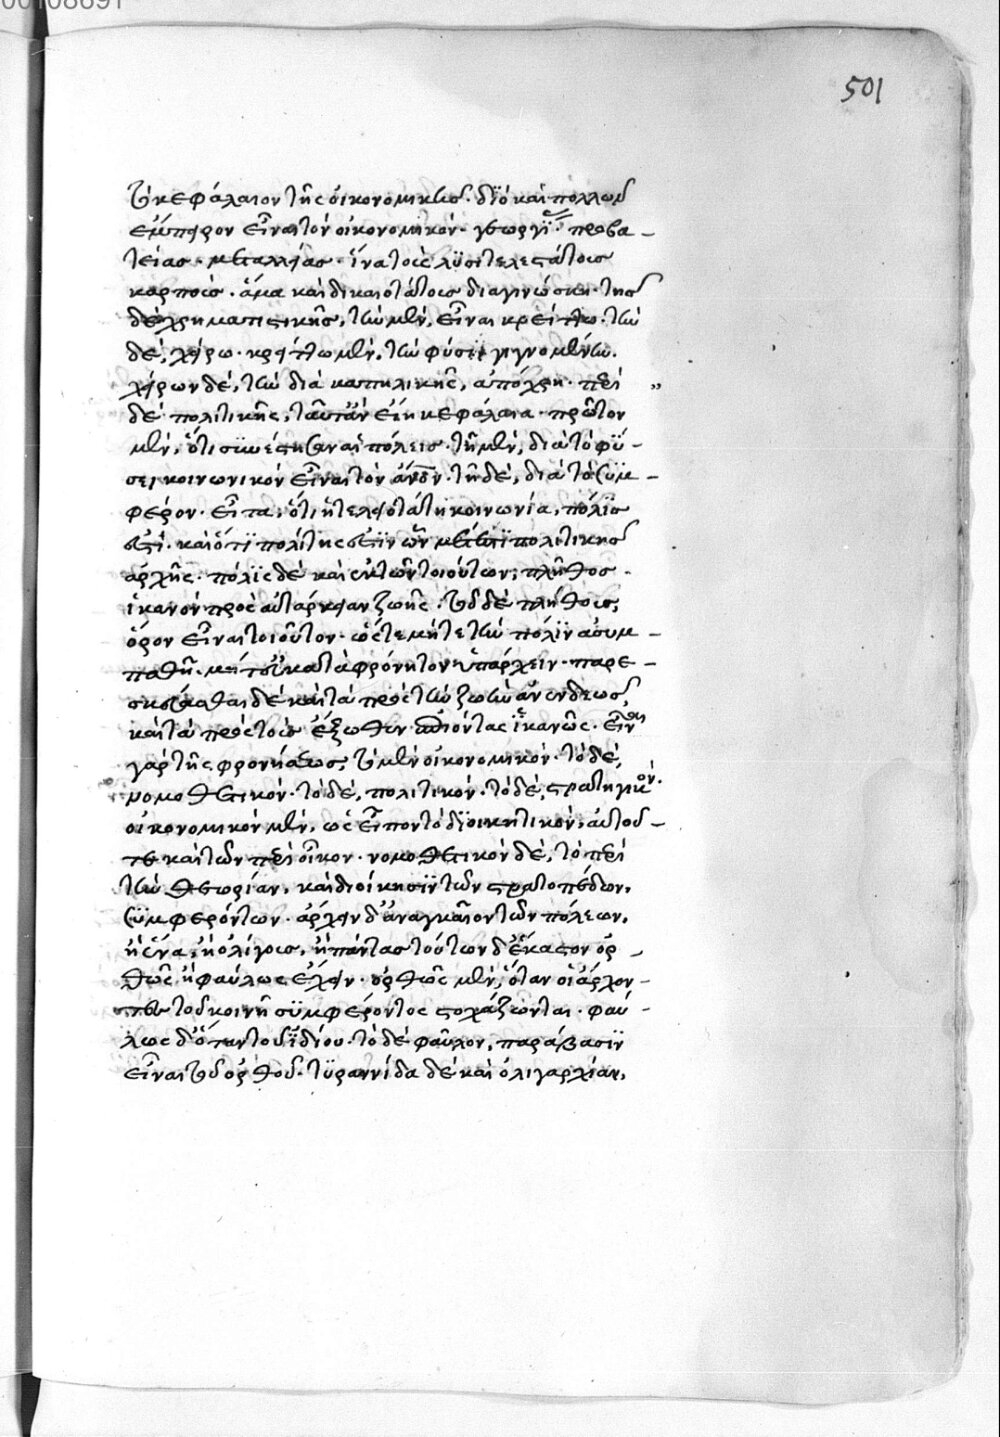 00108691
501
τὸ κεφάλαιον τῆς οἰκονομικῆς. διὸ καὶ πολλῶν
ἔμπειρον εἶναι τὸν οἰκονομικόν. γεωργί προβα-
τείας. μεταλλείας. ἵνα τοὺς λυσιτελεστάτους
καρποὺς. ἅμα καὶ δικαιοτάτους διαγινώσκῃ. τῆς
δὲ χρηματιστικῆς, τὴν μὲν, εἶναι κρείττω. τὴν
δὲ, χείρω. κρείττω μὲν, τὴν φύσει γιγνομένην.
χείρων δὲ, τὴν διὰ καπηλικῆς, ἀπόχρη. περὶ
δὲ πολιτικῆς, ταῦτ' ἂν εἴη κεφάλαια. πρῶτον
μὲν, ὅτι συνέστησαν αἱ πόλεις. τῇ μὲν, διὰ τὸ φύ-
σει κοινωνικὸν εἶναι τὸν ἄνον. τῇ δὲ, διὰ τὸ συμ-
φέρον. εἶτα, ὅτι ἡ τελειοτάτη κοινωνία, πόλις
ἐστὶ. καὶ ὅτι πολίτης ἐστὶν ᾧ μέτεστι πολιτικῆς
ἀρχῆς. πόλις δὲ καὶ ἐκ τῶν τοιούτων, πλῆθος.
ἱκανὸν πρὸς αὐτάρκειαν ζωῆς. τοῦ δὲ πλήθους,
ὅρον εἶναι τοιοῦτον. ὥστε μήτε τὴν πόλιν ἀσυμ-
παθῆ. μήτ' εὐκαταφρόνητον ὑπάρχειν. παρε-
σκευάσθαι δὲ καὶ τὰ πρὸς τὴν ζωὴν ἀνενδεῶς,
καὶ τὰ πρὸς τοὺς ἔξωθεν ἐπιόντας ἱκανῶς. εἶναι
γὰρ τῆς φρονήσεως, τὸ μὲν οἰκονομικόν. τὸ δὲ,
νομοθετικόν. τὸ δὲ, πολιτικόν. τὸ δὲ, στρατηγικόν.
οἰκονομικὸν μὲν, ὡς εἶπον τὸ διοικητικὸν, αὐτοῦ-
τε καὶ τῶν περὶ οἶκον. νομοθετικὸν δὲ, τὸ περὶ
τὴν θεωρίαν, καὶ διοίκησιν τῶν στρατοπέδων,
συμφερόντων. ἄρχειν δ' ἀναγκαῖον τῶν πόλεων,
ἢ ἕνα, ἢ ὀλίγους, ἢ πάντας τούτων δ' ἕκαστον ὀρ-
θῶς ἢ φαύλως ἔχειν. ὀρθῶς μὲν, ὅταν οἱ ἄρχον-
τες τοῦ κοινῇ συμφέροντος στοχάζωνται. φαύ-
λως δ' ὅταν τοῦ ἰδίου. τὸ δὲ φαῦλον, παράβασιν
εἶναι τοῦ ὀρθοῦ. τυραννίδα δὲ καὶ ὀλιγαρχίαν,